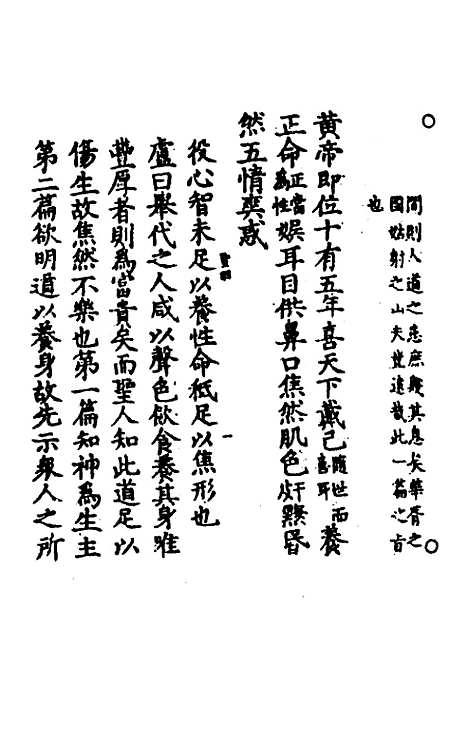 間則人道之恙庶幾其息矣華胥之
國姑射之山夫豈遠哉此一篇之旨
也
黃帝即位十有五年喜天下戴己隨世而喜耳養
正命正當為性娛耳目供鼻口焦然肌色皯黣昏
然五情爽惑
役心智未足以養性命秖足以焦形也
盧曰舉代之人咸以聲色飲食養其身唯
豐厚者則為富貴矣而聖人知此道足以
傷生故焦然不樂也第一篇知神為生主
第二篇欲明道以養身故先示衆人之所